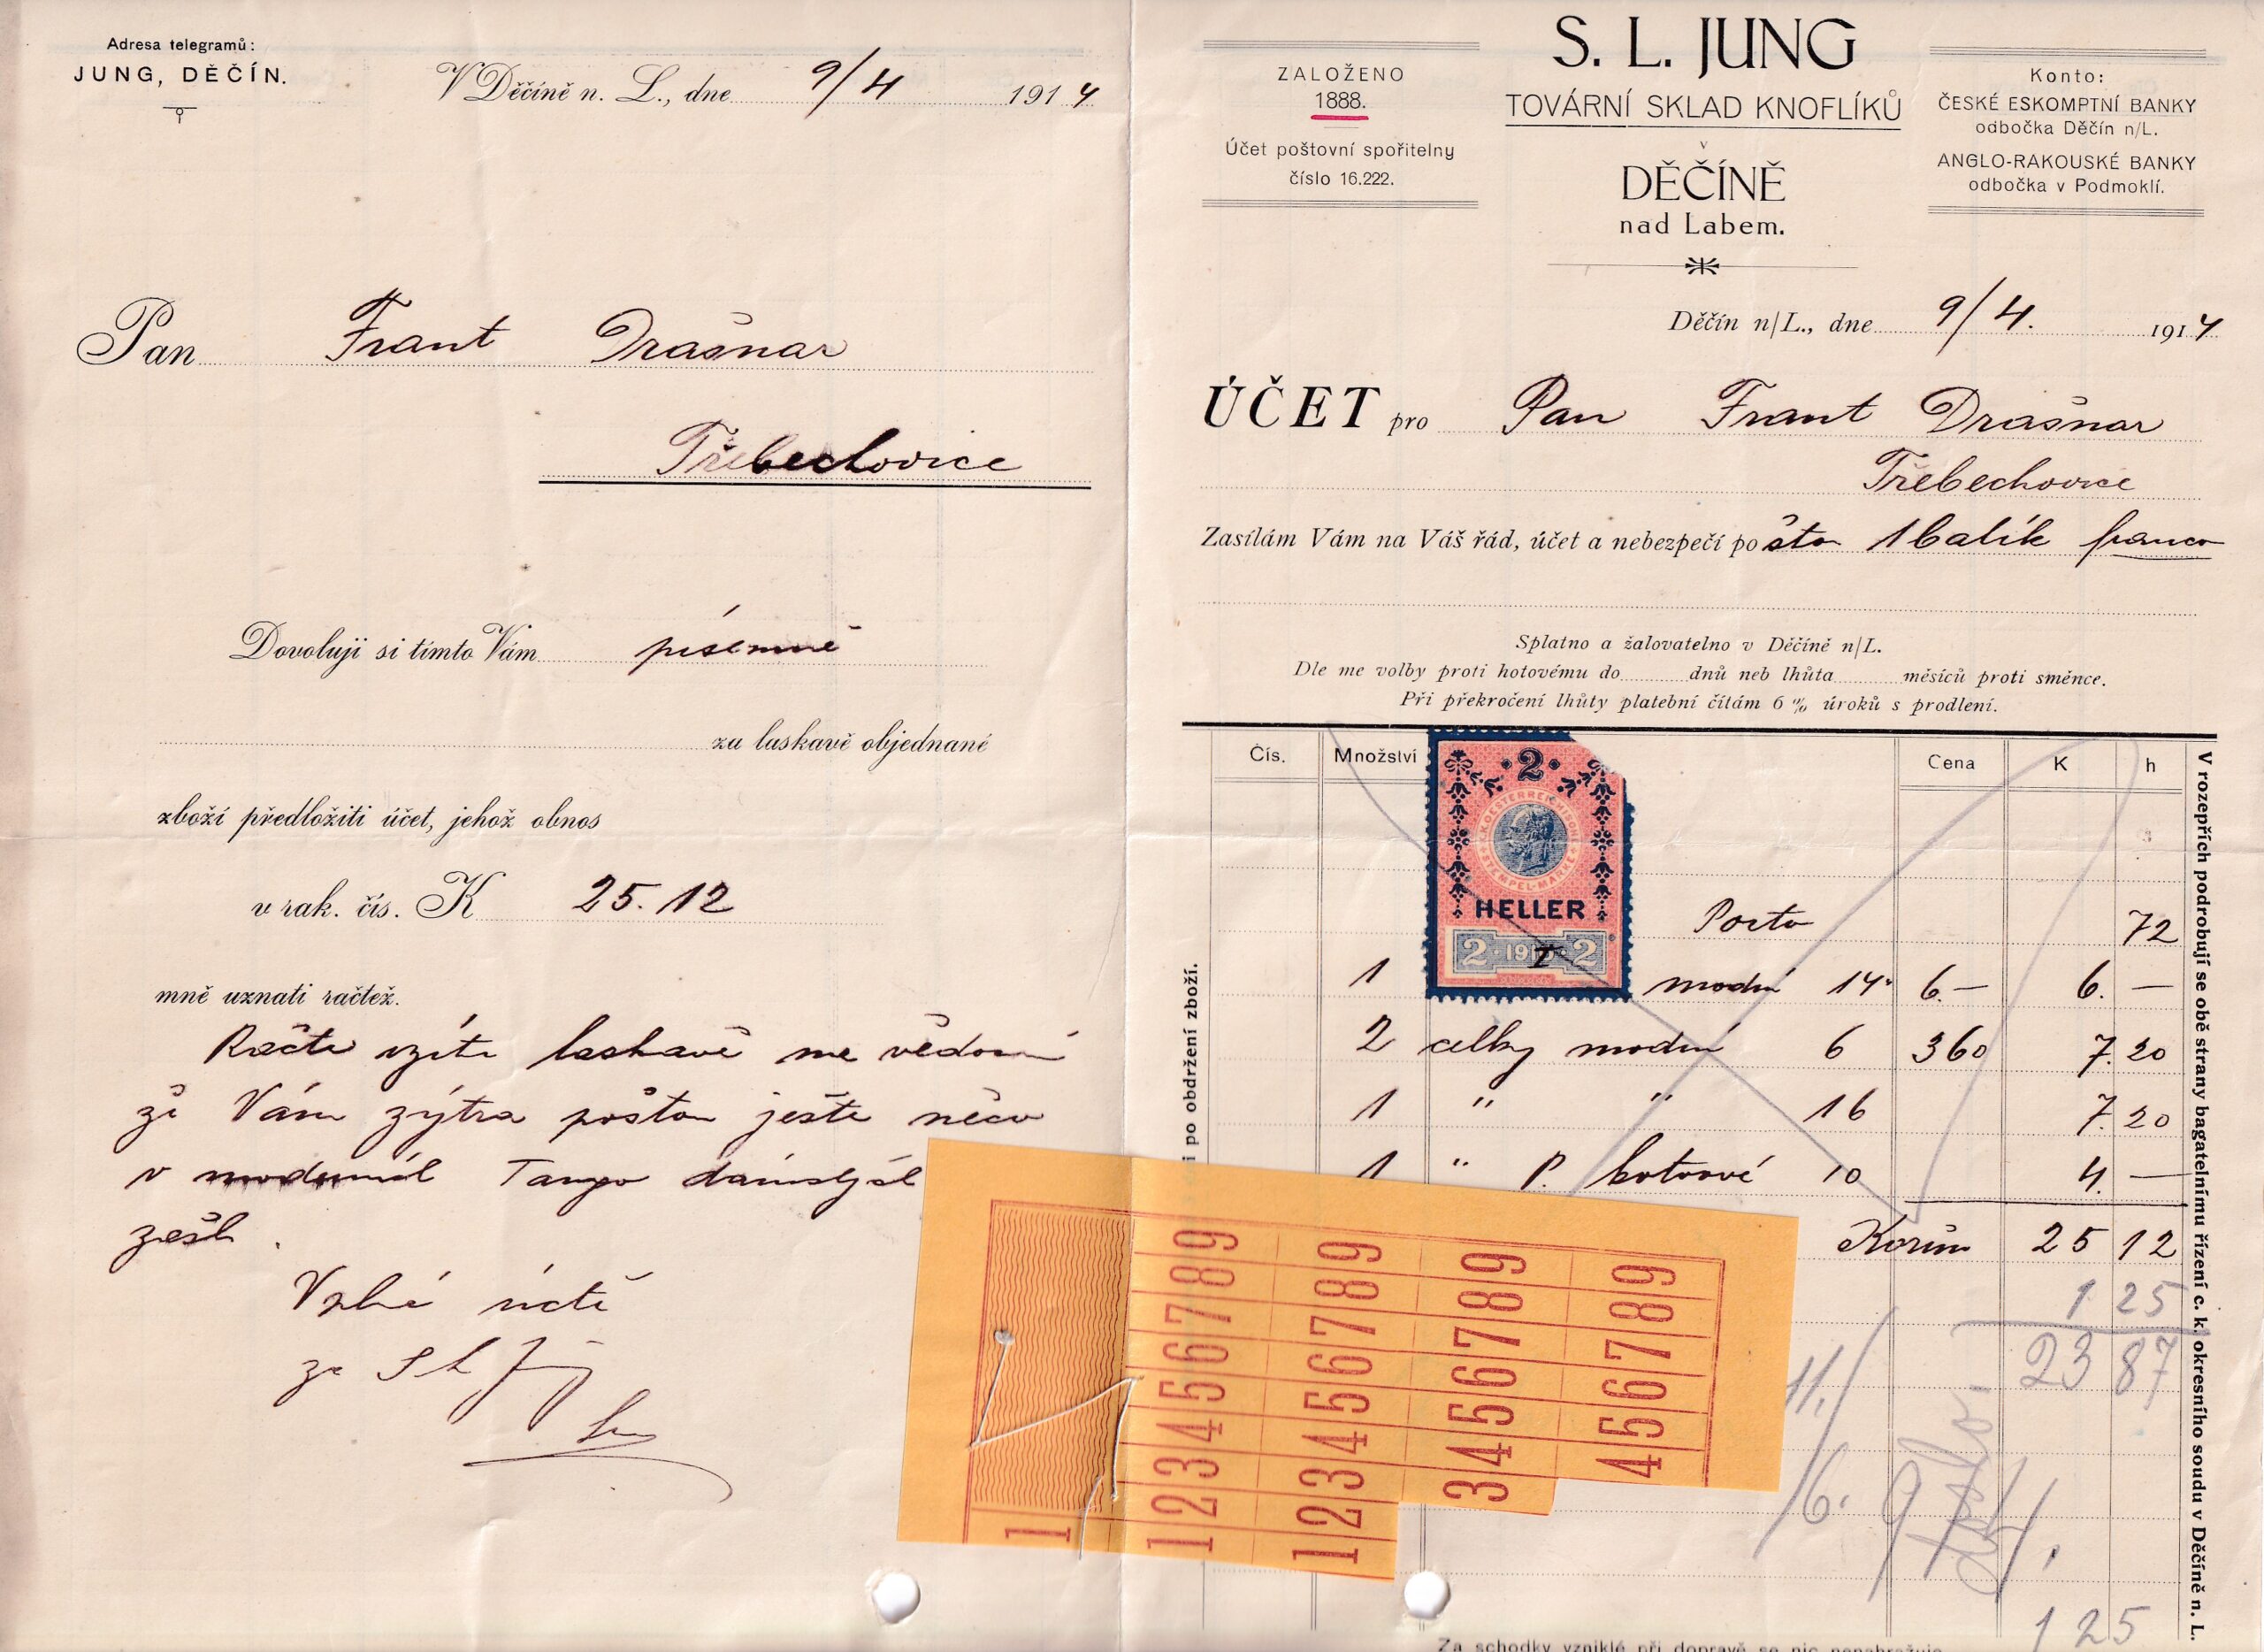 Adresa telegramů:
JUNG, DĚČÍN.
V Děčíně n. L., dne 9/4 1914
Pan Frant Drašnar
Třebechovice
Dovoluji si tímto Vám písemně
za laskavě objednané
zboží předložiti účet, jehož obnos
v rak. čís. K 25.12
mně uznati račtež.
Račte vzíti laskavě me vědomí
že Vám zýtra poštou ještě něco
v Tango dámských
zašlu.
V úctě
za S L Jung
ZALOŽENO
1888.
Účet poštovní spořitelny
číslo 16.222.
S. L. JUNG
TOVÁRNÍ SKLAD KNOFLÍKŮ
v
DĚČÍNĚ
nad Labem.
Konto:
ČESKÉ ESKOMPTNÍ BANKY
odbočka Děčín n/L.
ANGLO-RAKOUSKÉ BANKY
odbočka v Podmoklí.
Děčín n/L., dne 9/4. 1914
ÚČET pro Pan Frant Drašnar
Třebechovice
Zasílám Vám na Váš řád, účet a nebezpečí poštou 1 balík franco
Splatno a žalovatelno v Děčíně n/L.
Dle me volby proti hotovému do dnů neb lhůta měsíců proti směnce.
Při překročení lhůty platební čítám 6 % úroků s prodlení.
Čís. Množství Cena K h
2
K.K. ÖSTERREICHISCHE STEMPEL-MARKE
HELLER
2 2
Porto 72
1 modní 14" 6.— 6. —
2 celky modní 6 360 7.20
1 " " 16 7.20
1 " P. kotoové 10 4. —
Korun 25 12
1 25
23 87
11./6.
9/4.
125
i po obdržení zboží.
V rozepřích podrobují se obě strany bagatelnímu řízení c. k. okresního soudu v Děčíně n. L.
1
1 2 3 4 5 6 7 8 9
1 2 3 4 5 6 7 8 9
3 4 5 6 7 8 9
4 5 6 7 8 9
Za schodky vzniklé při dopravě se nic nenahražuje